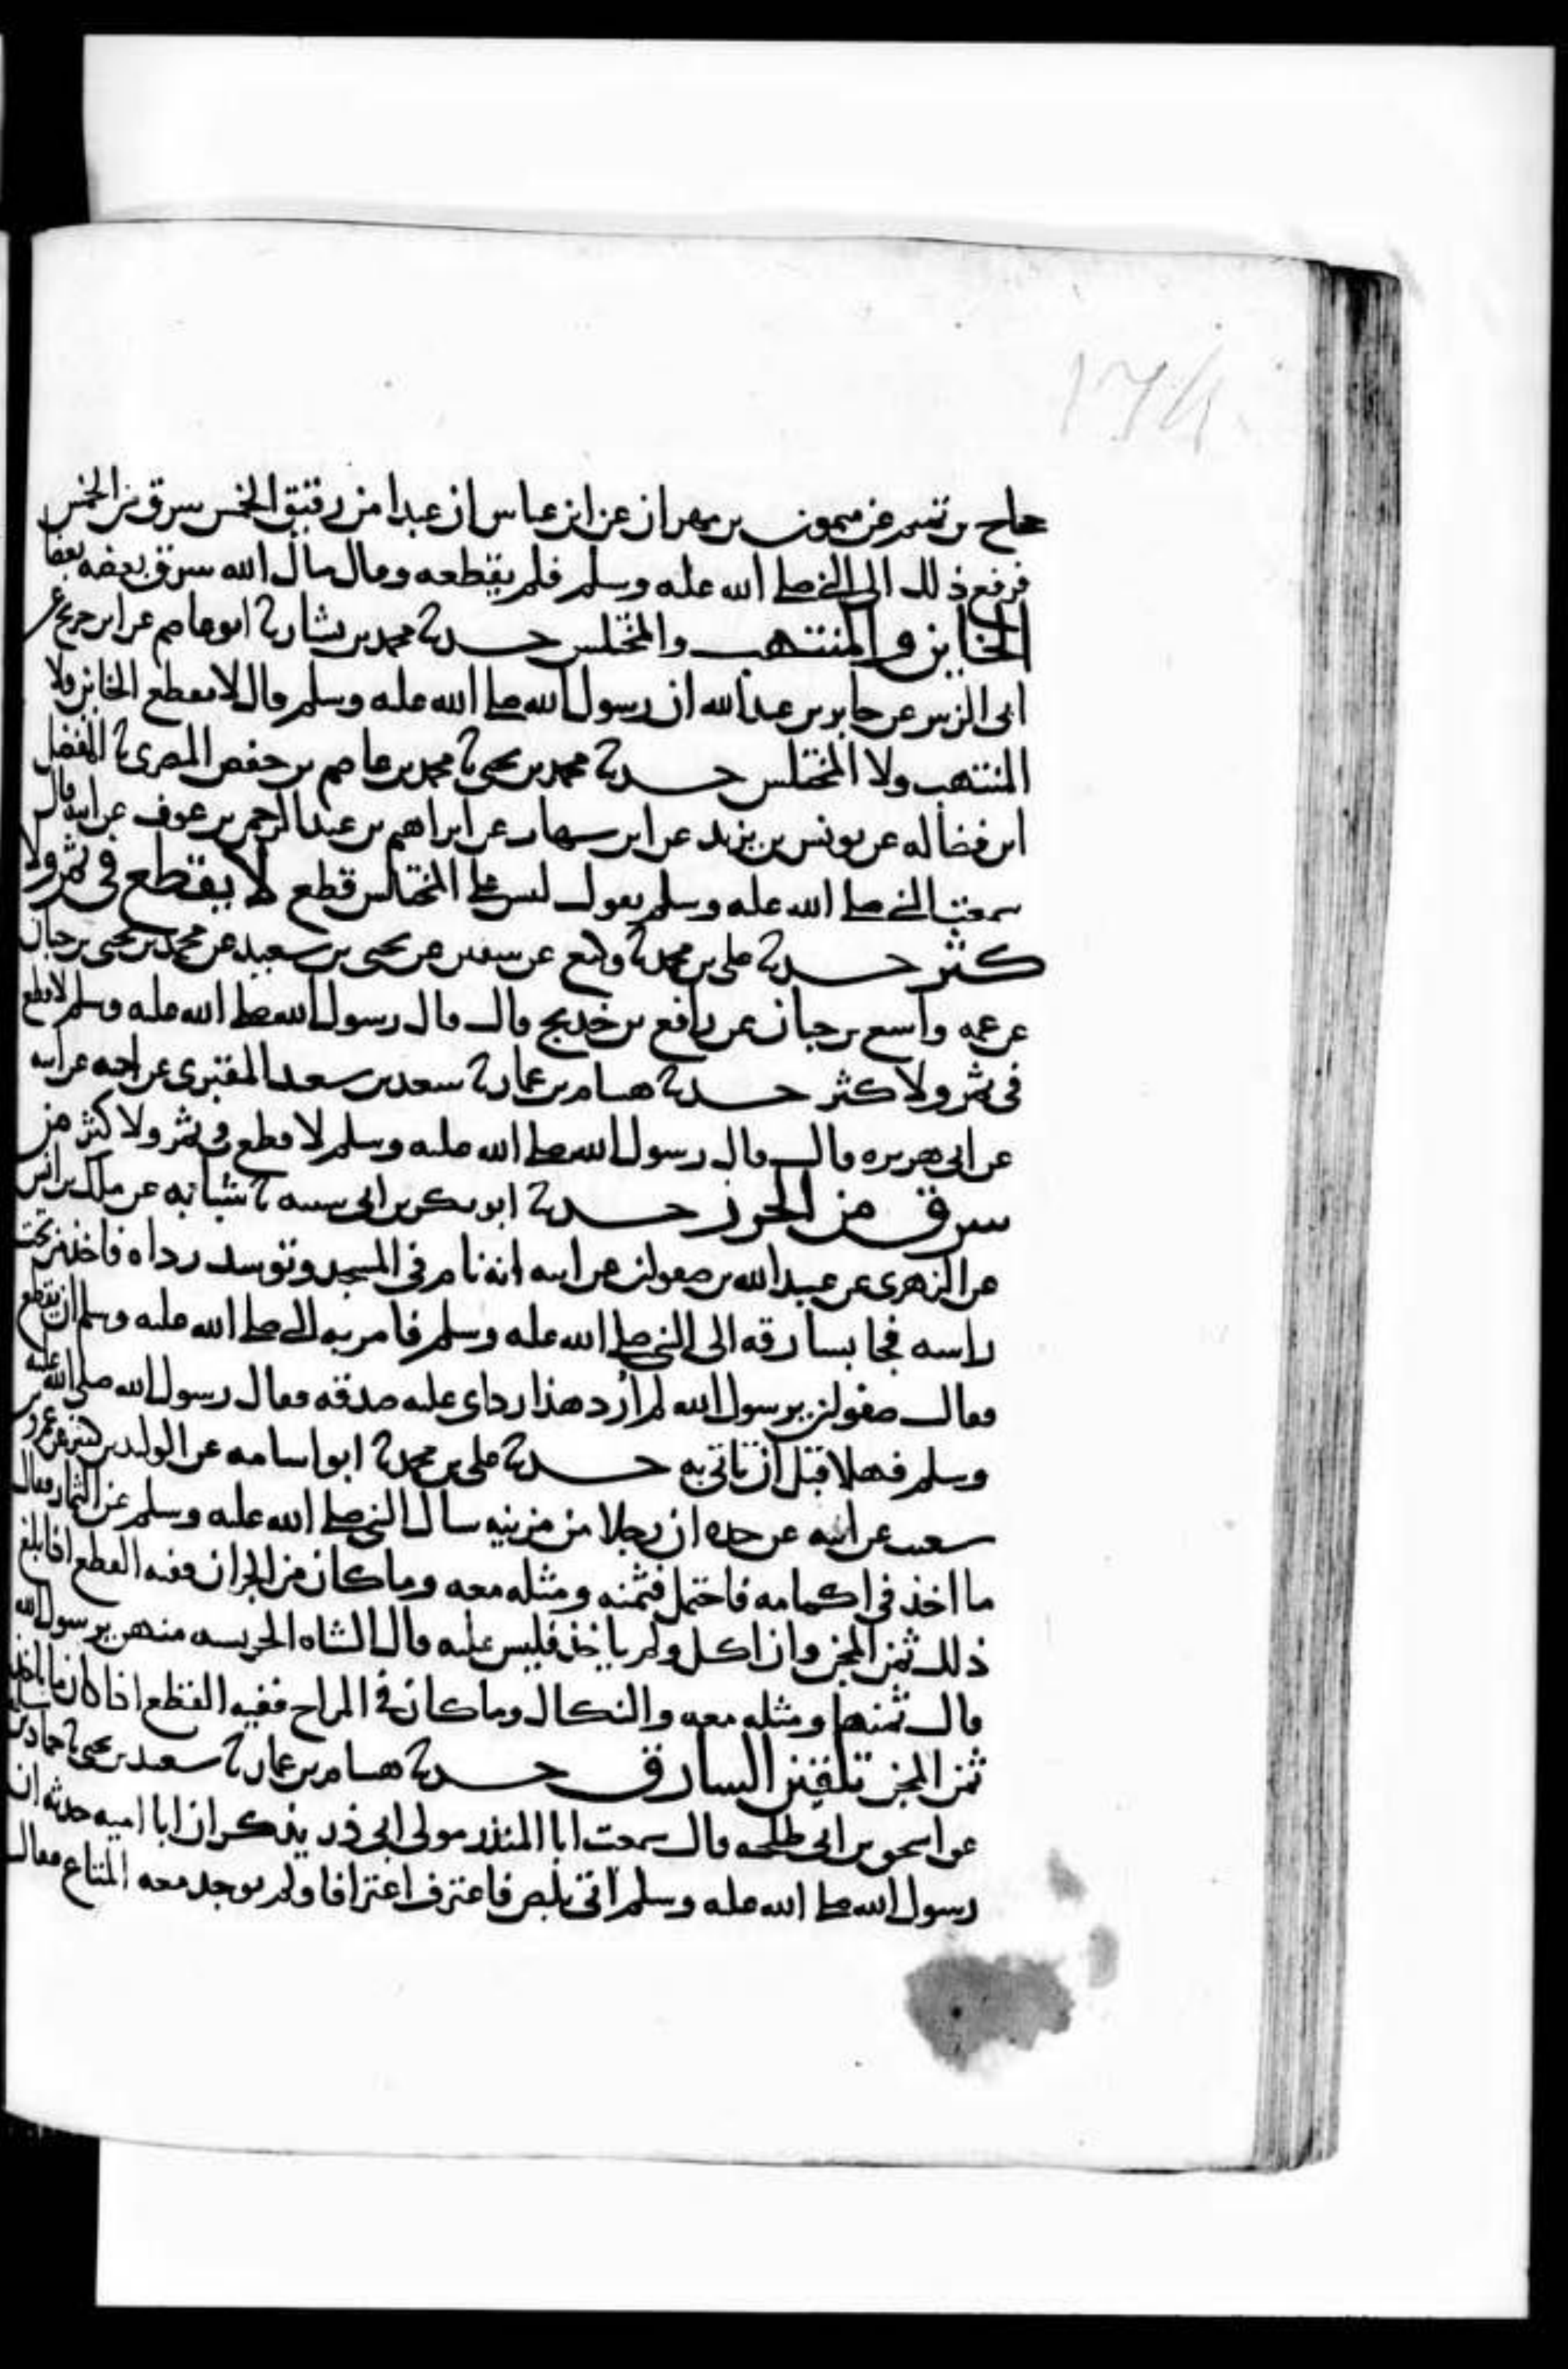 ١٧٤
حجاج بن تميم عن ميمون بن مهران عن ابن عباس ان عبدا من رقيق الخمس سرق من الخمس
فرفع ذلك الى النبي صلى الله عليه وسلم فلم يقطعه وقال مال الله سرق بعضه بعضا
الخاين والمنتهب والمختلس حدثنا محمد بن بشار نا ابو عاصم عن ابن جريج عن
ابي الزبير عن جابر بن عبد الله ان رسول الله صلى الله عليه وسلم قال لا يقطع الخاين ولا
المنتهب ولا المختلس حدثنا محمد بن يحيى نا محمد بن عاصم بن جعفر المصري نا المفضل
ابن فضاله عن يونس بن يزيد عن ابن شهاب عن ابراهيم بن عبد الرحمن بن عوف عن ابيه قال
سمعت النبي صلى الله عليه وسلم يقول ليس على المختلس قطع لا يقطع في ثمر ولا
كثر حدثنا علي بن محمد نا وكيع عن سفين عن يحيى بن سعيد عن محمد بن يحيى بن حبان
عن عمه واسع بن حبان عن رافع بن خديج قال قال رسول الله صلى الله عليه وسلم لا قطع
في ثمر ولا كثر حدثنا هشام بن عمار نا سعد بن سعيد المقبري عن اخيه عن ابيه
عن ابي هريره قال قال رسول الله صلى الله عليه وسلم لا قطع في ثمر ولا كثر من
سرق من الحرز حدثنا ابو بكر بن ابي شيبه نا شبابه عن ملك بن انس
عن الزهري عن عبد الله بن صفوان عن ابيه انه نام في المسجد وتوسد رداه فاخذ من تحت
راسه فجا بسارقه الى النبي صلى الله عليه وسلم فامر به النبي صلى الله عليه وسلم ان يقطع
فقال صفوان يرسول الله لم أرد هذا رداي عليه صدقه فقال رسول الله صلى الله عليه
وسلم فهلا قبل ان تاتي به حدثنا علي بن محمد نا ابو اسامه عن الوليد بن كثير عن عمرو بن
شعيب عن ابيه عن جده ان رجلا من مزينه سال النبي صلى الله عليه وسلم عن الثمار فقال
ما اخذ في اكمامه فاحتمل فثمنه ومثله معه وما كان من الجران ففيه القطع اذا بلغ
ذلك ثمن المجن وان اكل ولم ياخذ فليس عليه قال الشاه الحريسه منهن يرسول الله
قال ثمنها ومثله معه والنكال وما كان في المراح ففيه القطع اذا كان ما ياخذ
ثمن المجن تلقين السارق حدثنا هشام بن عمار نا سعيد بن يحيى نا حماد بن
عن اسحق بن ابي طلحه قال سمعت ابا المنذر مولى ابي ذر يذكر ان ابا اميه حدثه ان
رسول الله صلى الله عليه وسلم اتي بلص فاعترف اعترافا ولم يوجد معه المتاع فقال